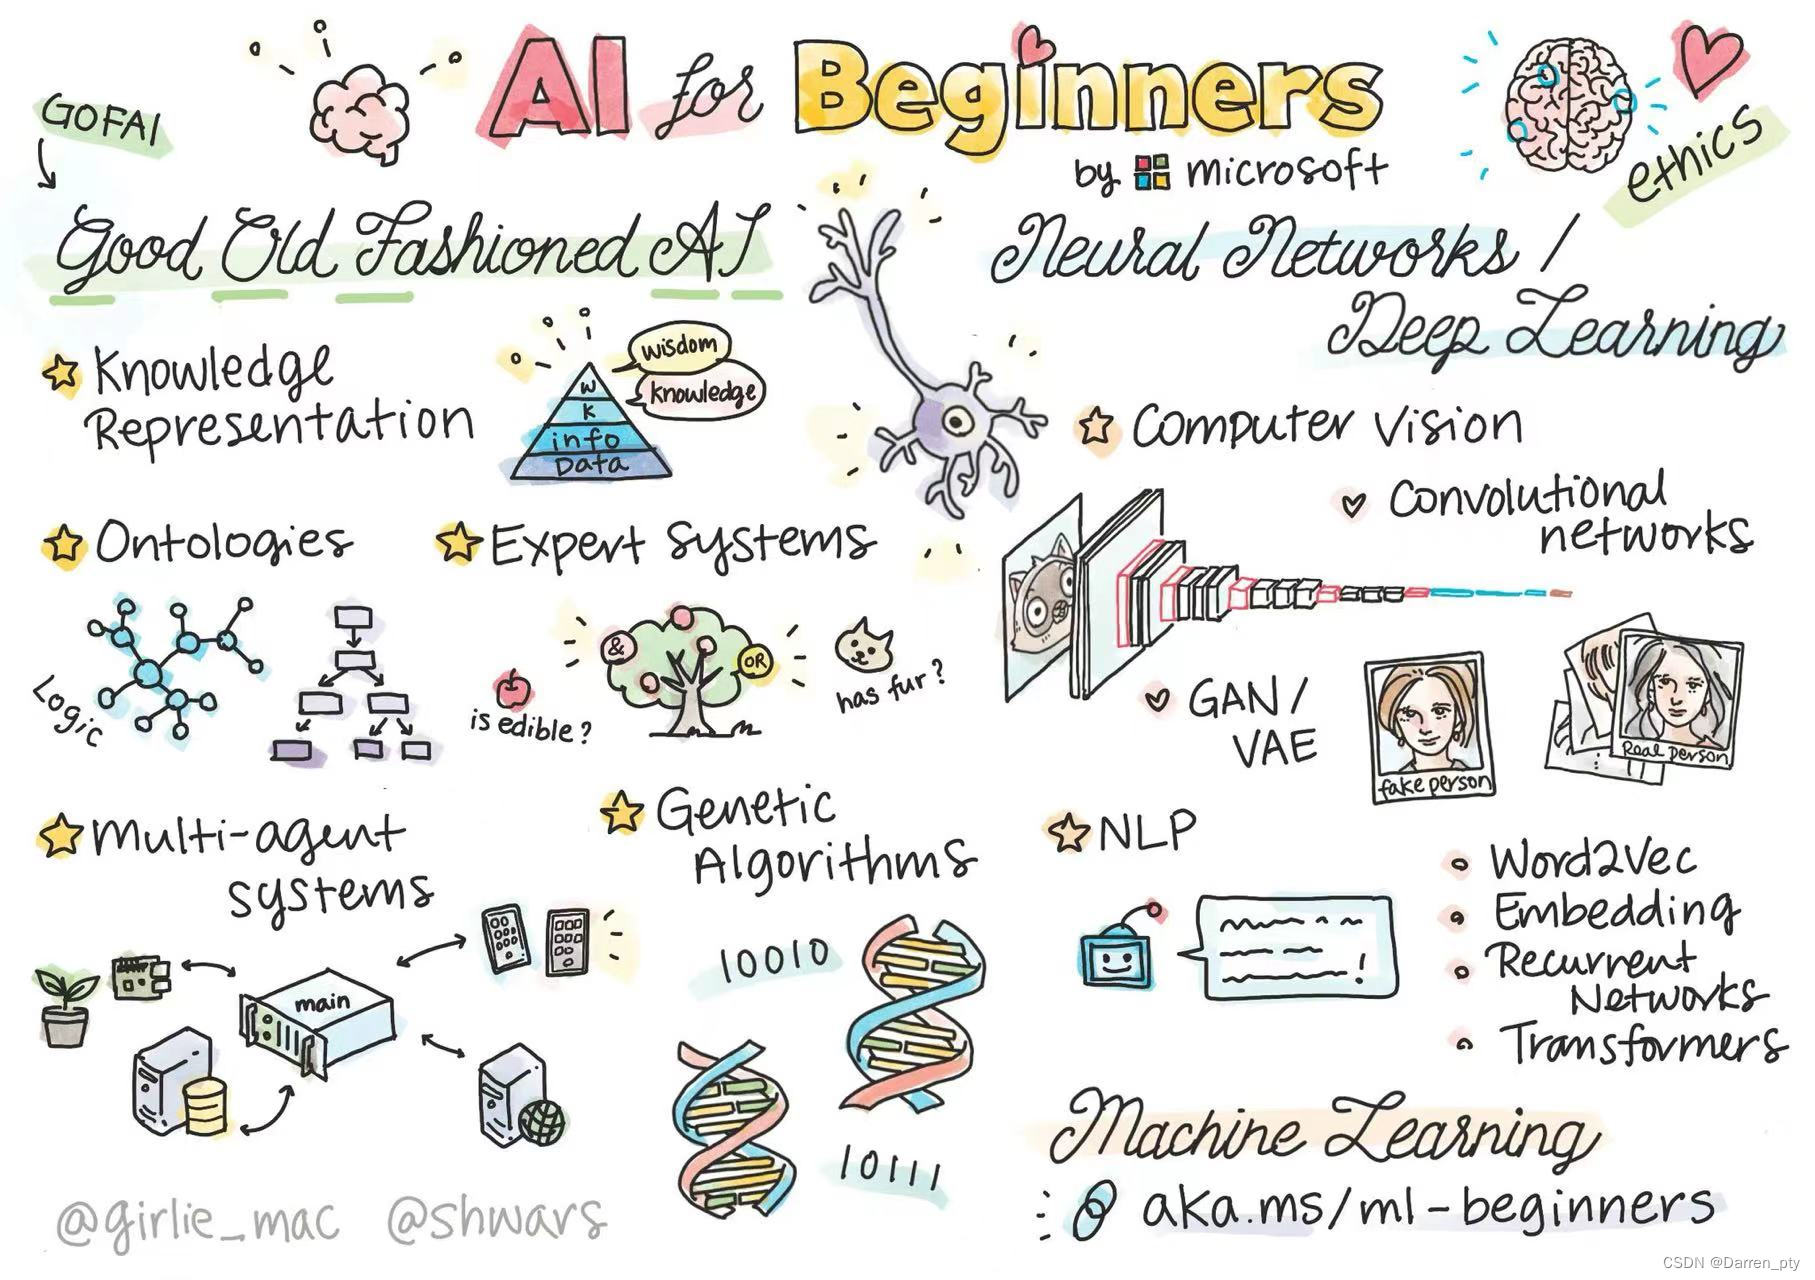 AI for Beginners
by microsoft
ethics
GOFAI
Good Old Fashioned AI
Knowledge
Representation
wisdom
knowledge
W
K
info
Data
Ontologies
Logic
Expert Systems
&
OR
is edible?
has fur?
Multi-agent
systems
main
Genetic
Algorithms
10010
10111
Neural Networks /
Deep Learning
Computer Vision
Convolutional
networks
GAN/
VAE
fake person
Real person
NLP
Word2Vec
Embedding
Recurrent
Networks
Transformers
!
Machine Learning
aka.ms/ml-beginners
@girlie_mac @shwars
CSDN @Darren_pty